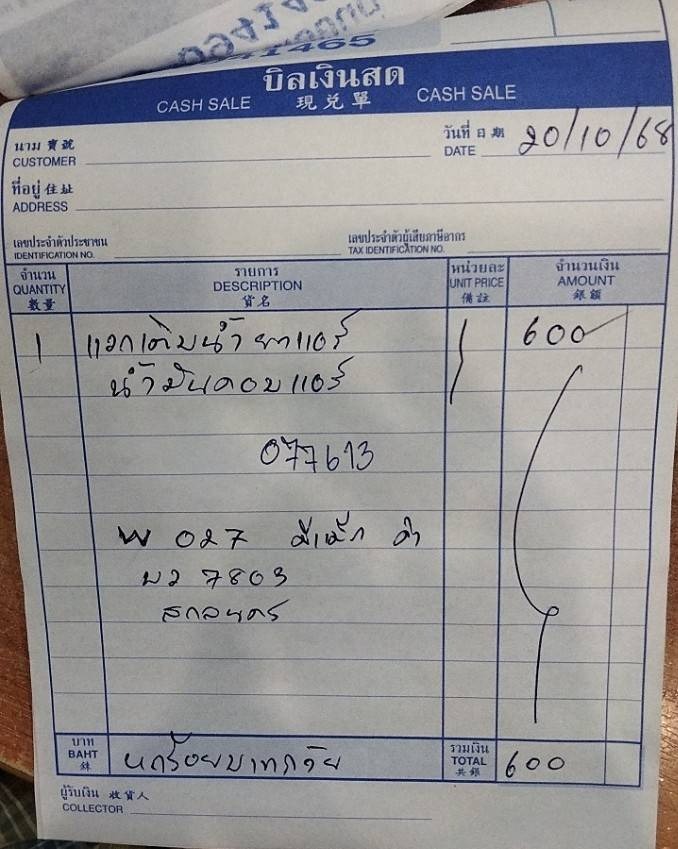 41465
บิลเงินสด
CASH SALE 現兌單 CASH SALE
นาม 寶號
CUSTOMER
วันที่ 日期
DATE 20/10/68
ที่อยู่ 住址
ADDRESS
เลขประจำตัวประชาชน
IDENTIFICATION NO.
เลขประจำตัวผู้เสียภาษีอากร
TAX IDENTIFICATION NO.
จำนวน รายการ หน่วยละ จำนวนเงิน
QUANTITY DESCRIPTION UNIT PRICE AMOUNT
數量 貨名 備註 銀額
1 แวคเติมน้ำยาแอร์ 600
น้ำมันคอมแอร์
077613
027 ดำ
บว 7803
สกลนคร
บาท
BAHT
銖
หกร้อยบาทถ้วย
รวมเงิน
TOTAL 600
共銀
ผู้รับเงิน 收貨人
COLLECTOR